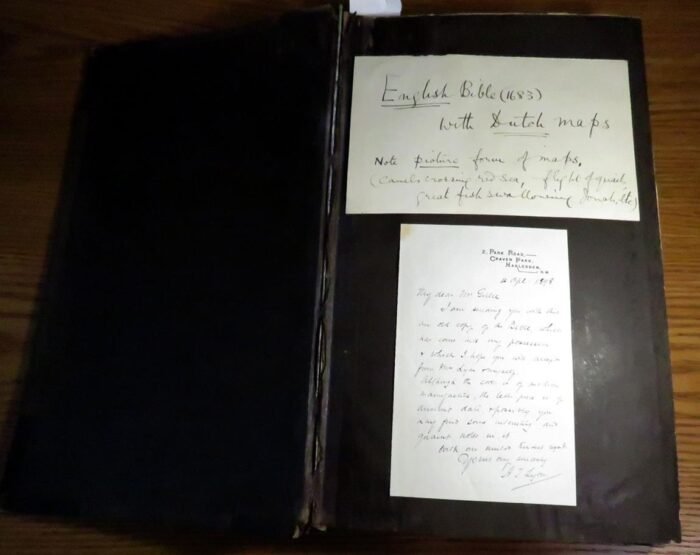 English Bible (1683)
with Dutch maps
Note picture form of maps,
(camels crossing red sea, flight of quail,
great fish swallowing Jonah, etc)
2, Park Road,
Craven Park,
Harlesden,
N.W.
My dear Mr
I am sending you with this
an old copy of the Bible, which
has come into my possession
& which I hope you will accept
from Mrs Lyon & myself.
Although the cover is of modern
the letter press is of
ancient date & possibly you
may find some interesting and
quaint notes in it
With our united kindest regards